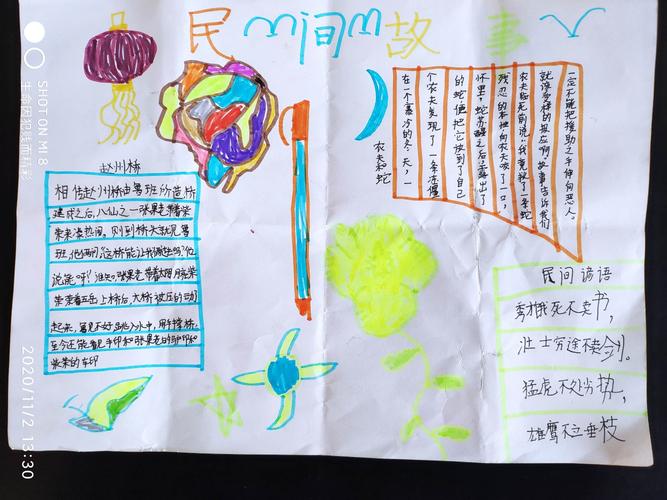 民间故事
赵州桥
相传赵州桥由鲁班所造,桥
建成之后,八仙之一张果老带着柴
荣来凑热闹。刚到桥头就见鲁
班,他俩问"这桥能让我俩过吗?"他
说能呀!谁知张果老带着太阳月亮柴
荣带着五岳上桥后,大桥被压的动
起来,鲁见不好跳入水中,用手撑桥,
至今还能看见手印和张果老的驴印和
柴荣的车印
农夫和蛇
在一个寒冷的冬天,一
个农夫发现了一条冻僵
的蛇便把它放到了自己
怀里,蛇苏醒之后露出了
残忍的本性向农夫咬了一口,
农夫临死前说:我竟救了一条蛇
就该受这样的报应啊!故事告诉我们
一定不能把援助之手伸向恶人。
民间谚语
秀才饿死不卖书,
壮士穷途不卖剑。
猛虎不处劣势,
雄鹰不立垂枝
SHOT ON MI 8
2020/11/2 13:30